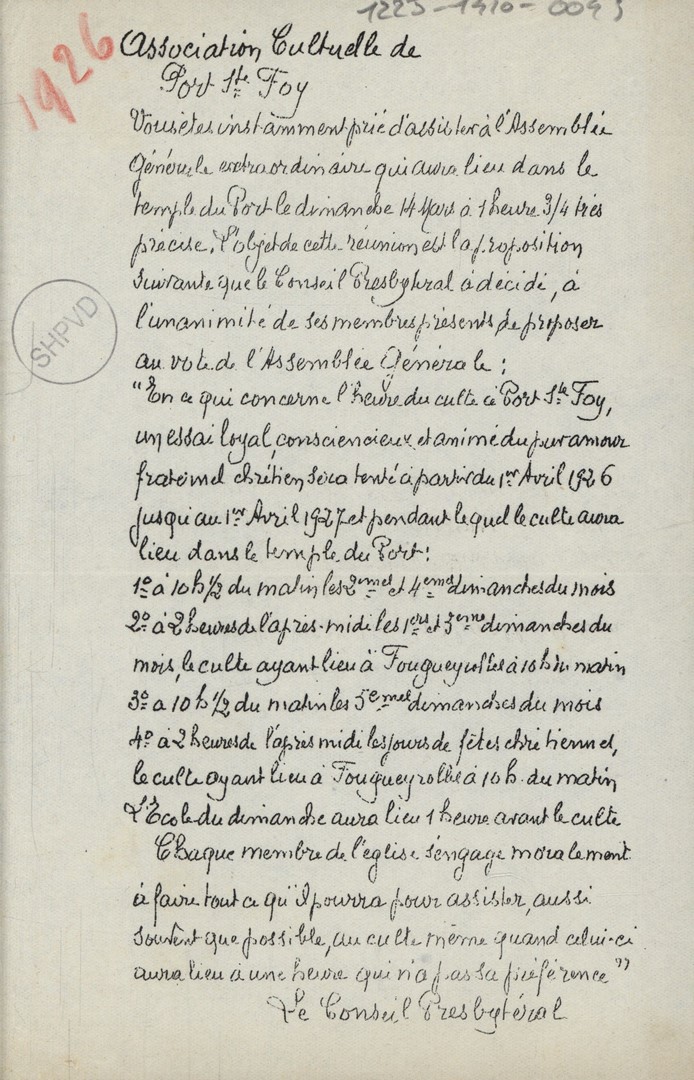 1223-1410-0045
1926
Association Cultuelle de
Port Ste Foy
Vous êtes instamment prié d'assister à l'Assemblée
Générale extraordinaire qui aura lieu dans le
temple du Port le dimanche 14 Mars à 1 heure 3/4 très
précise. L'objet de cette réunion est la proposition
suivante que le Conseil Presbytéral a décidé, à
l'unanimité de ses membres présents de proposer
au vote de l'Assemblée Générale :
"En ce qui concerne l'heure du culte à Port Ste Foy,
un essai loyal, consciencieux et animé du pur amour
fraternel chrétien sera tenté à partir du 1er Avril 1926
jusqu'au 1er Avril 1927 et pendant lequel le culte aura
lieu dans le temple du Port :
1º à 10 h 1/2 du matin les 2emes et 4emes dimanches du mois
2º à 2 heures de l'après-midi les 1ers et 3eme dimanches du
mois, le culte ayant lieu à Fougueyrolles à 10 h du matin
3º à 10 h 1/2 du matin les 5emes dimanches du mois
4º à 2 heures de l'après midi les jours de fêtes chrétiennes,
le culte ayant lieu à Fougueyrolles à 10 h. du matin
L'Ecole du dimanche aura lieu 1 heure avant le culte
Chaque membre de l'église s'engage moralement
à faire tout ce qu'il pourra pour assister, aussi
souvent que possible, au culte même quand celui-ci
aura lieu à une heure qui n'a pas sa préférence"
Le Conseil Presbytéral
SHPVD